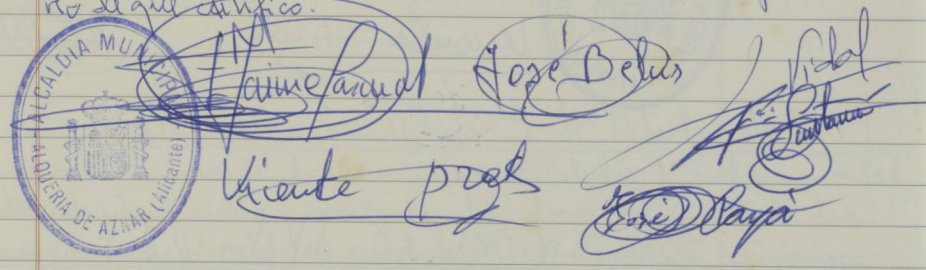 que certifico.
ALCALDIA MUNICIPAL
ALQUERIA DE AZNAR (Alicante)
Jaime Pascual
José Belus
Vidal
Quintana
Vicente Prats
José Payá